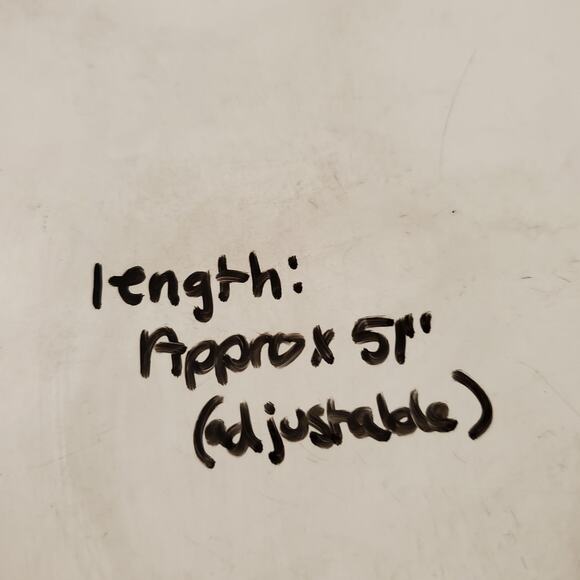 length:
Approx 51"
(adjustable)